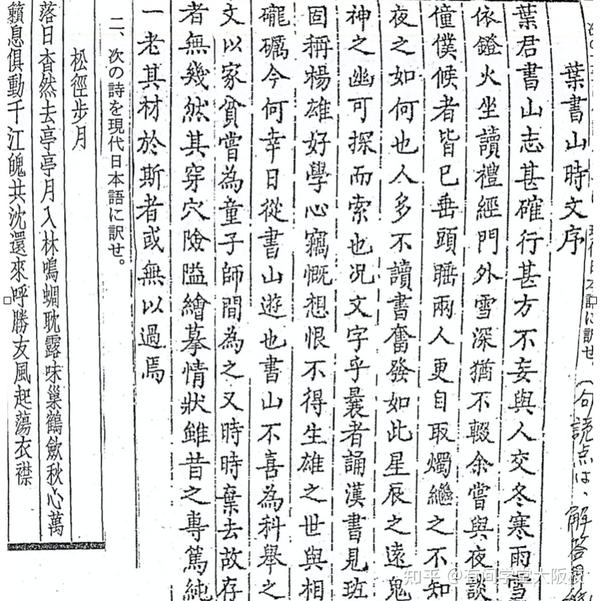 現代日本語に訳せ。(句読点は、解答
葉書山時文序
葉君書山志甚確行甚方不妄與人交冬寒雨雪
依鐙火坐讀禮經門外雪深猶不輟余嘗與夜談
僮僕候者皆已垂頭睡兩人更自取燭繼之不知
夜之如何也人多不讀書奮發如此星辰之遠鬼
神之幽可探而索也况文字乎曩者誦漢書見班
固稱楊雄好學心竊慨想恨不得生雄之世與相
礲礪今何幸日從書山遊也書山不喜為科舉之
文以家貧嘗為童子師間為之又時時棄去故存
者無幾然其穿穴險隘繪摹情狀雖昔之專篤純
一老其材於斯者或無以過焉
二、次の詩を現代日本語に訳せ。
松徑步月
落日杳然去亭亭月入林鳴蜩耽露味巢鶴斂秋心萬
籟息俱動千江魄共沈還來呼勝友風起蕩衣襟
知乎 @有问学堂大阪校